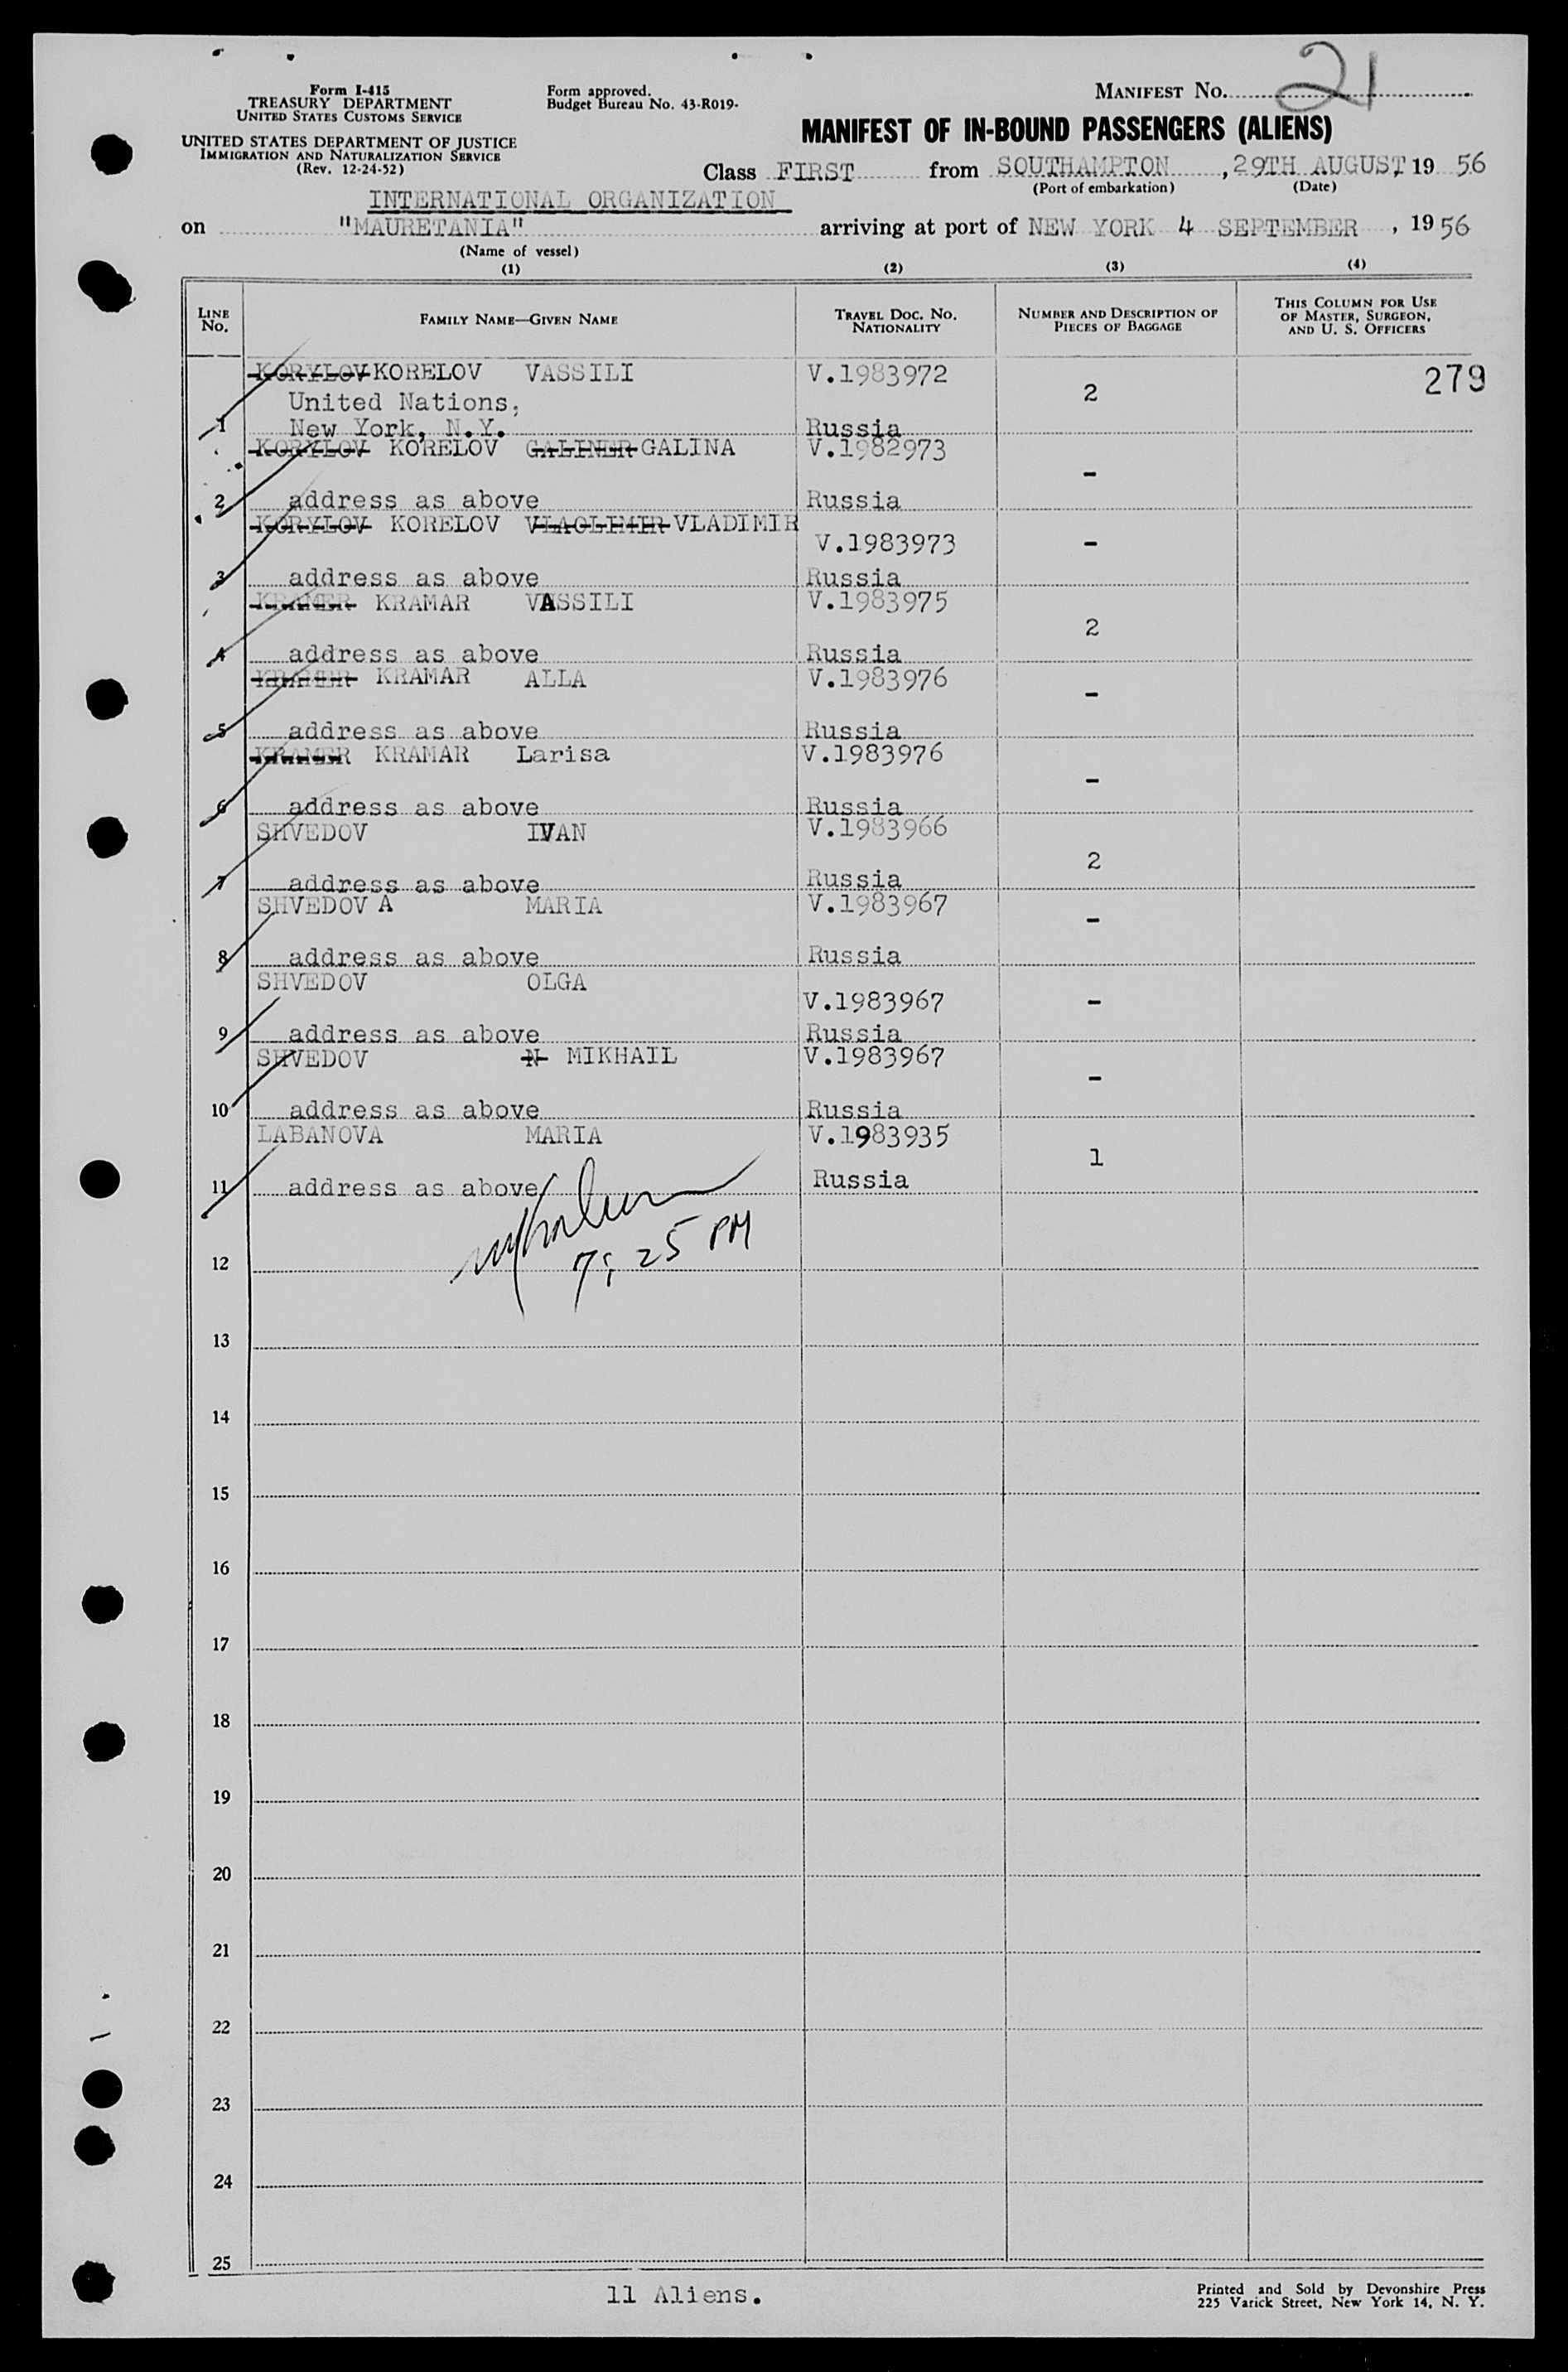 Form I-415
TREASURY DEPARTMENT
UNITED STATES CUSTOMS SERVICE
UNITED STATES DEPARTMENT OF JUSTICE
IMMIGRATION AND NATURALIZATION SERVICE
(Rev. 12-24-52)
Form approved.
Budget Bureau No. 43-R019-
MANIFEST No. 21
MANIFEST OF IN-BOUND PASSENGERS (ALIENS)
Class FIRST from SOUTHAMPTON, 29TH AUGUST, 19 56
(Port of embarkation) (Date)
INTERNATIONAL ORGANIZATION
on "MAURETANIA" arriving at port of NEW YORK 4 SEPTEMBER, 1956
(Name of vessel)
(1) (2) (3) (4)
LINE No. FAMILY NAME—GIVEN NAME TRAVEL DOC. No. NATIONALITY NUMBER AND DESCRIPTION OF PIECES OF BAGGAGE THIS COLUMN FOR USE OF MASTER, SURGEON, AND U. S. OFFICERS
KORYLOV KORELOV VASSILI V.1983972 2 279
United Nations,
1 New York, N.Y. Russia
KORYLOV KORELOV GALINER GALINA V.1982973 -
2 address as above Russia
KORYLOV KORELOV VLAOLIMIR VLADIMIR V.1983973 -
3 address as above Russia
KRAMER KRAMAR VASSILI V.1983975 2
4 address as above Russia
KRAMER KRAMAR ALLA V.1983976 -
5 address as above Russia
KRAMER KRAMAR Larisa V.1983976 -
6 address as above Russia
SHVEDOV IVAN V.1983966 2
7 address as above Russia
SHVEDOV A MARIA V.1983967 -
8 address as above Russia
SHVEDOV OLGA V.1983967 -
9 address as above Russia
SHVEDOV N MIKHAIL V.1983967 -
10 address as above Russia
LABANOVA MARIA V.1983935 1
11 address as above Russia
7; 25 PM
12
13
14
15
16
17
18
19
20
21
22
23
24
25
11 Aliens.
Printed and Sold by Devonshire Press
225 Varick Street, New York 14, N. Y.